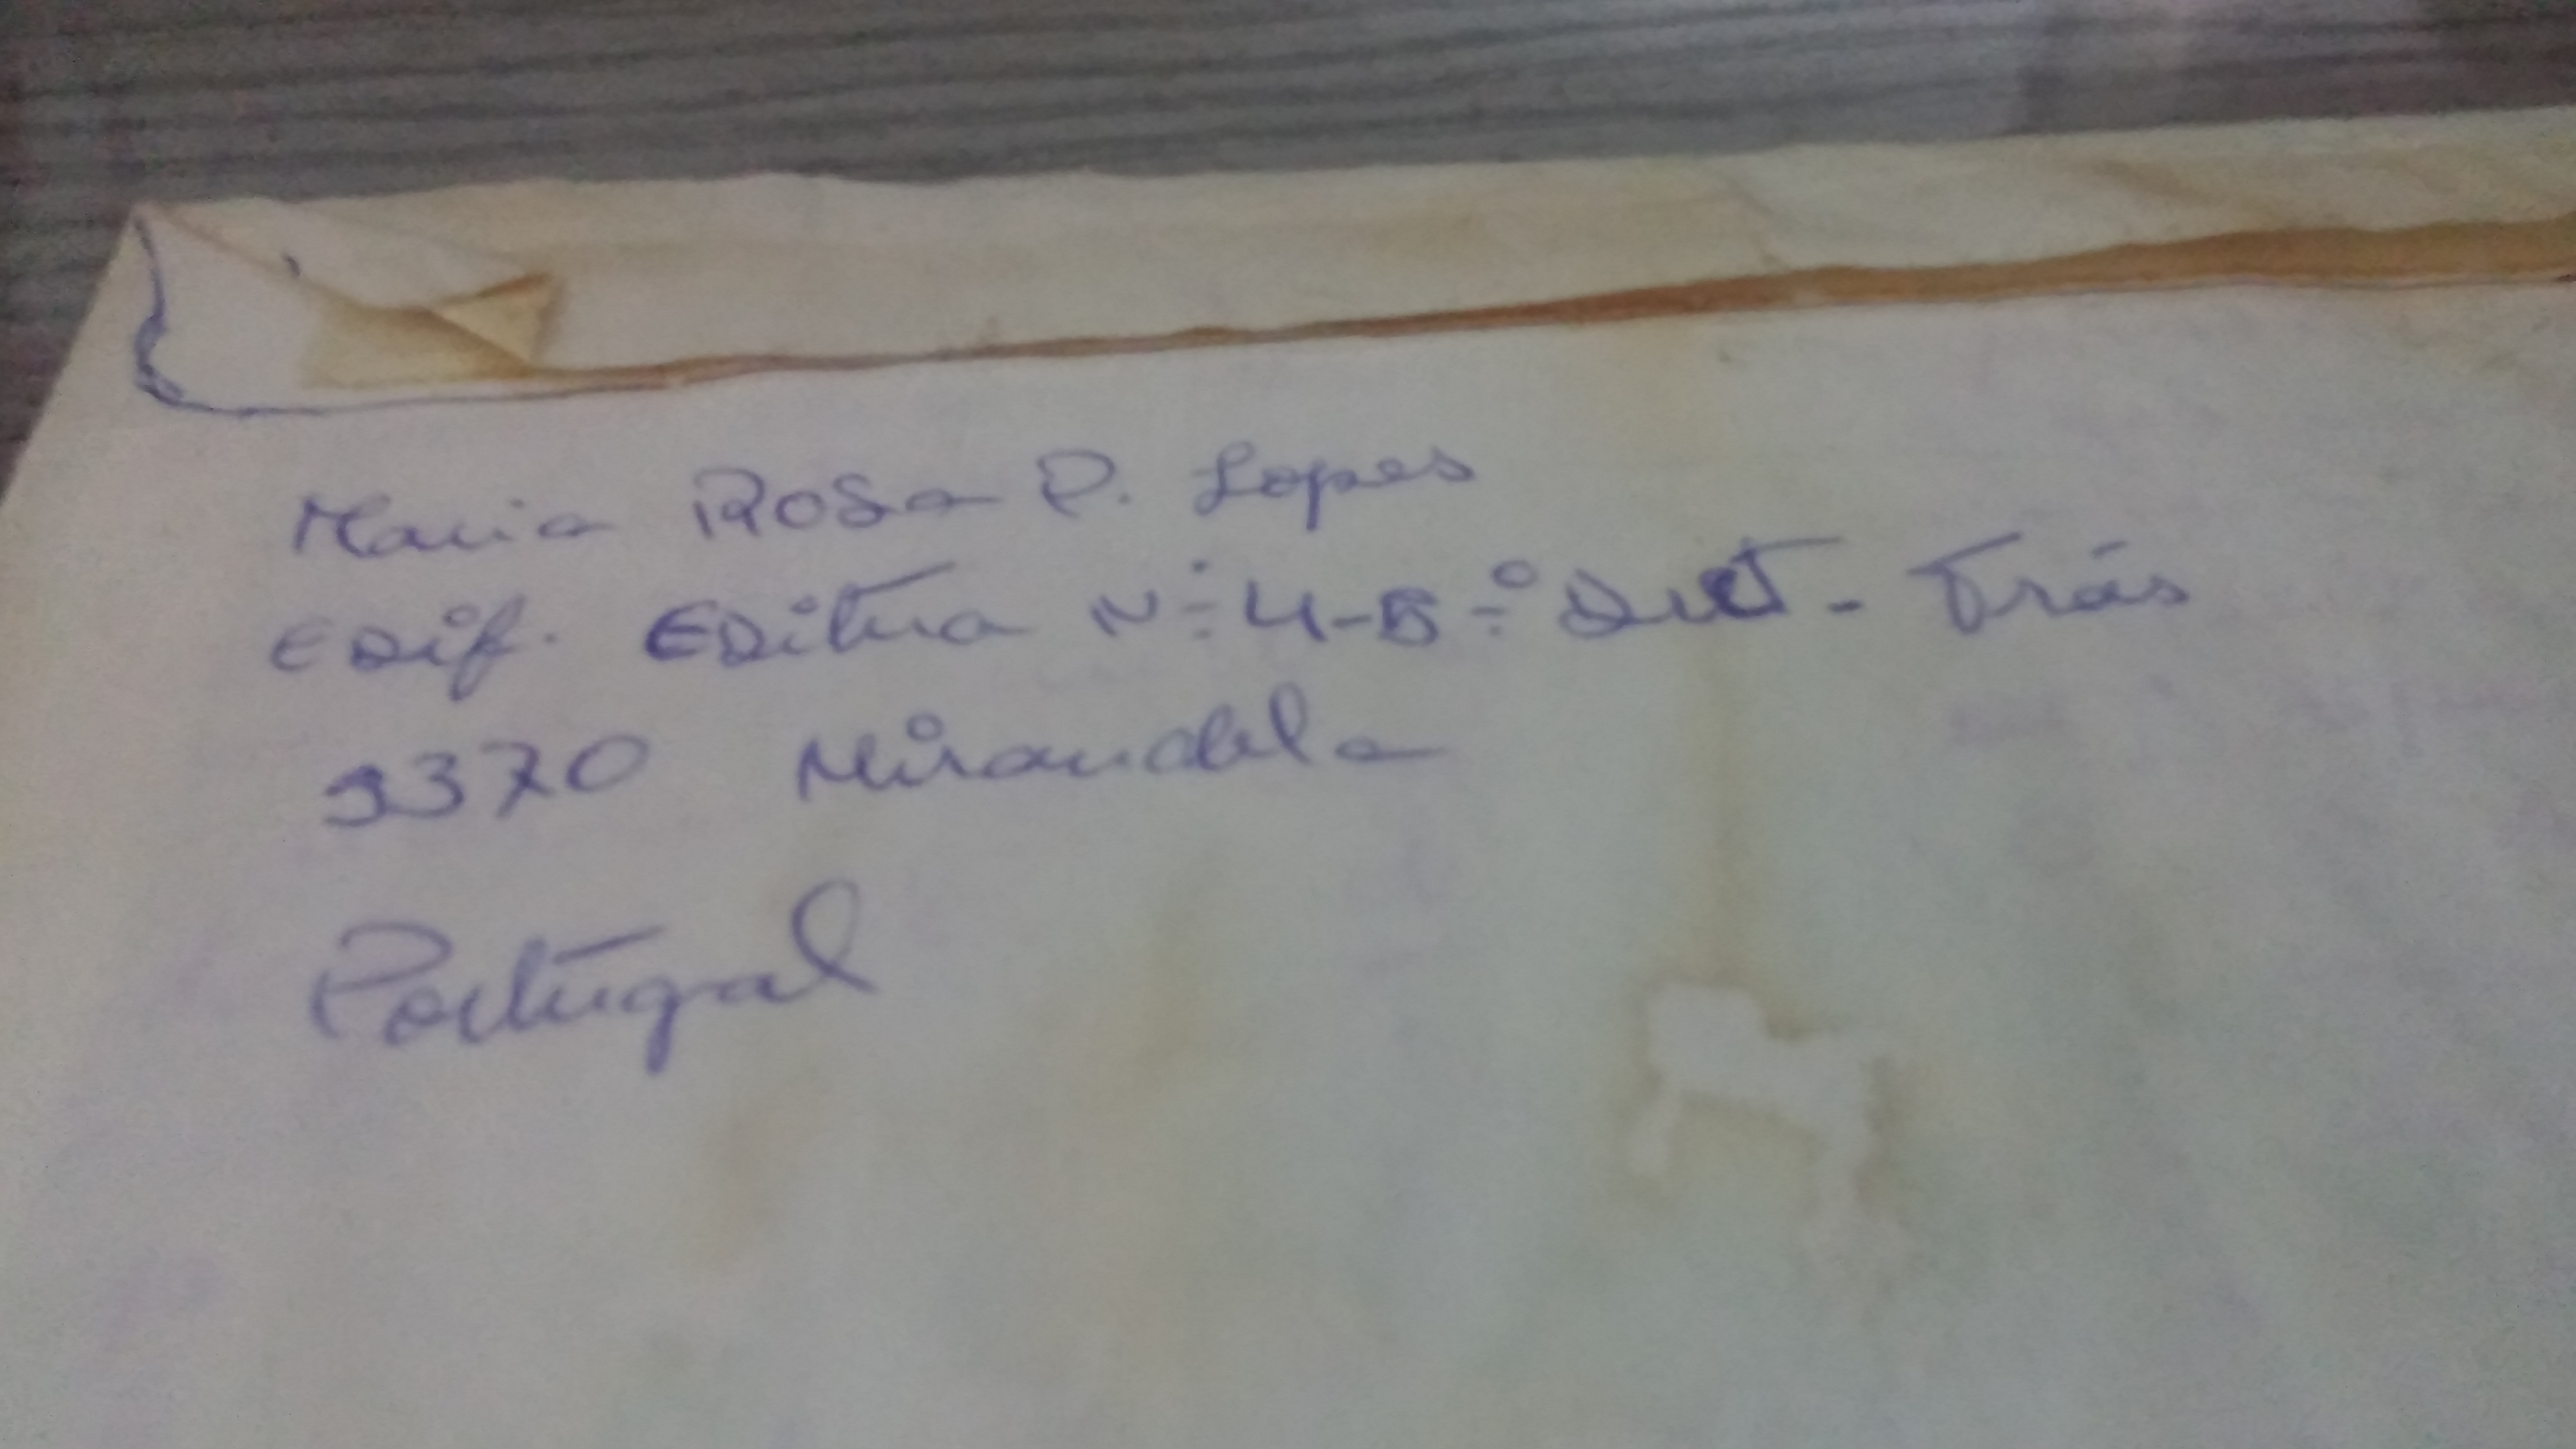 Maria Rosa P. Lopes
Edif. Editua Nº 4-5º Dct - Trás
5370 Mirandela
Portugal